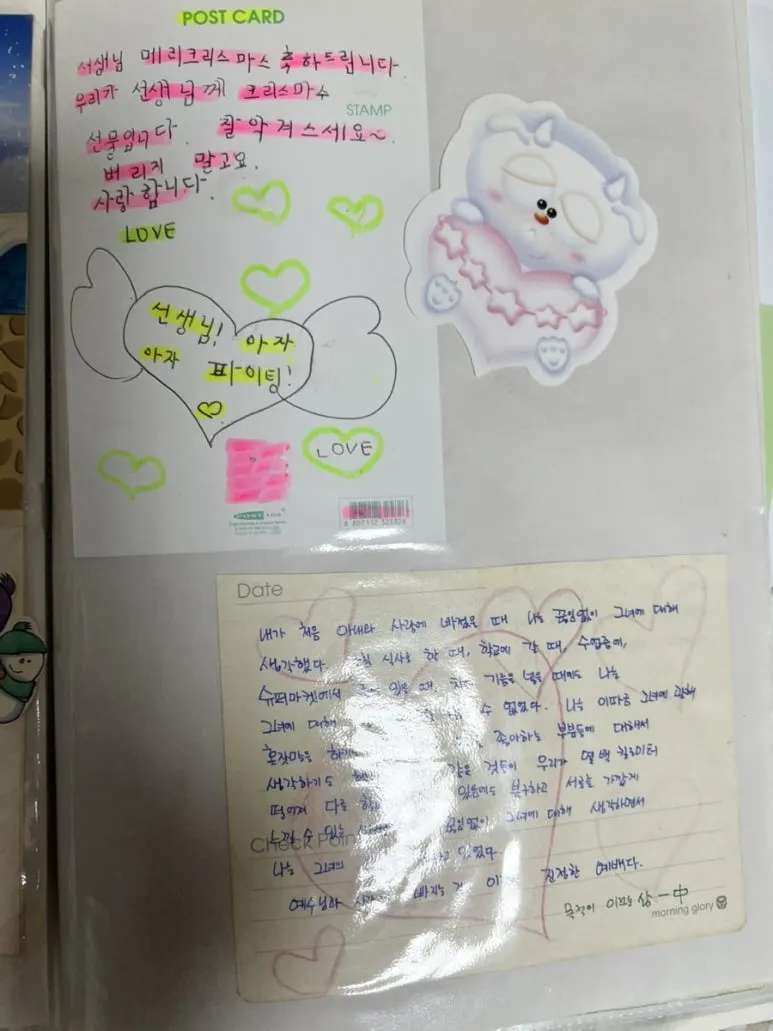 POST CARD
선생님 메리크리스마스 축하드립니다
우리가 선생님께 크리스마스
STAMP
선물입니다. 잘 악겨스세요~
버리지 말고요.
사랑합니다.
LOVE
선생님! 아자
아자 파이팅!
LOVE
Date
내가 처음 아내와 사랑에 빠졌을 때 나는 끊임없이 그녀에 대해
생각했다. 식사를 할 때, 학교에 갈 때, 수업중에,
슈퍼마켓에서 있을 때, 기름을 넣을 때에도 나는
그녀에 대해 수 없었다. 나는 이따금 그녀에 관해
혼잣말을 좋아하는 부분들에 대해서
생각하기도 같은 것들이 우리가 몇 백 킬로미터
떨어져 다른 있음에도 불구하고 서로를 가깝게
느낄 수 있는 끊임없이 그녀에 대해 생각하면서
Check Point
나는 그녀의 있었다.
예수님과 빠지는 것 진정한 예배다.
목적이 이끄는 삶 中
morning glory